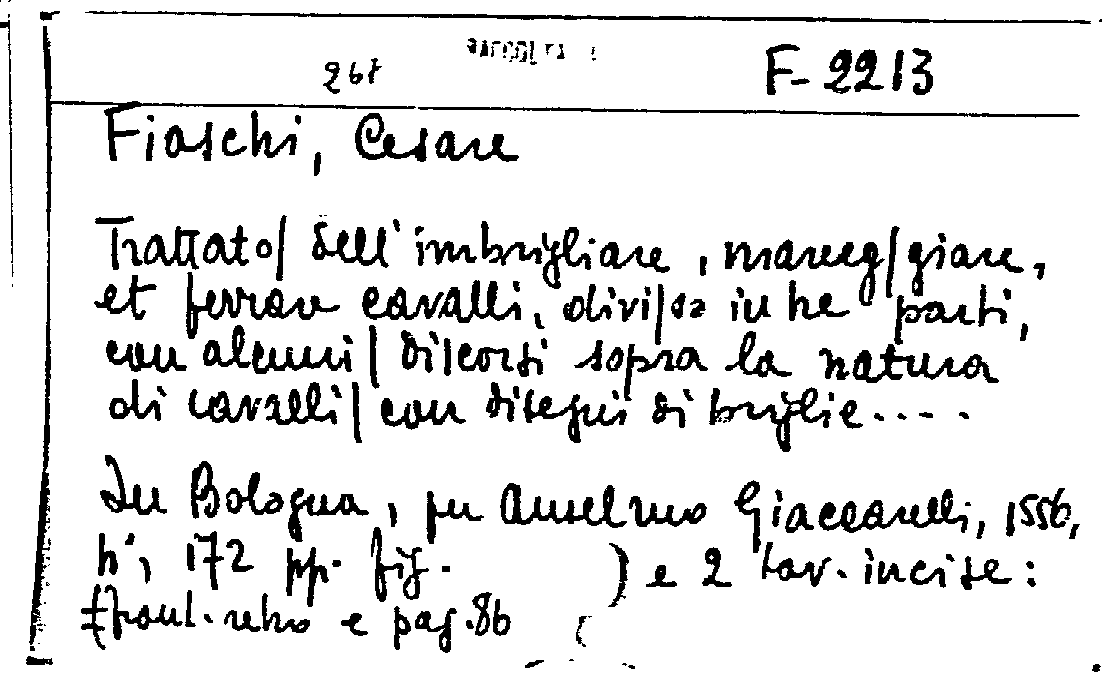 267 F-2213
Fiaschi, Cesare
Trattato/ dell'imbrigliare, maneg/giare,
et ferrare cavalli, divi/so in tre parti,
con alcuni/ discorsi sopra la natura
di cavalli/ con disegni di briglie....
In Bologna, per Anselmo Giaccarelli, 1556,
4°, 172 pp. fig. ) e 2 tav. incise:
front. retro e pag. 86 (